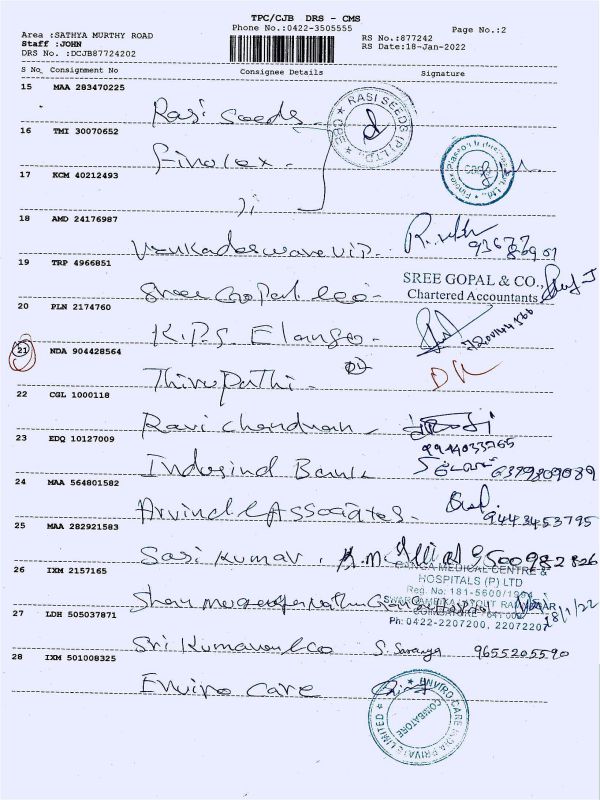 TPC/CJB DRS - CMS
Phone No.:0422-3505555
Page No.:2
Area :SATHYA MURTHY ROAD
Staff :JOHN
DRS No. :DCJB87724202
RS No.:877242
RS Date:18-Jan-2022
S No. Consignment No Consignee Details Signature
15 MAA 283470225
Rasi Seeds
RASI SEEDS (P) LTD. CBE
16 TMI 30070652
Finolex
17 KCM 40212493
18 AMD 24176987
19 TRP 4966851
Sree Gopal & Co
SREE GOPAL & CO.,
Chartered Accountants
20 PLN 2174760
K.P.S. Elango
21 NDA 904428564
Thirupathi
22 CGL 1000118
Ravi Chandran
9944033765
23 EDQ 10127009
Indusind Bank
6379209089
24 MAA 564801582
Arvind & Associates
9443453795
25 MAA 282921583
Sasi Kumar
9500982826
GANGA MEDICAL CENTRE &
HOSPITALS (P) LTD
Reg. No: 181-5600/1994
26 IXM 2157165
COIMBATORE - 641 002
Ph: 0422-2207200, 22072207
18/1/22
27 LDH 505037871
Sri Kumaran & Co S. Saranya 9655205590
28 IXM 501008325
Enviro Care
ENVIRO CARE INDIA PRIVATE LIMITED
COIMBATORE